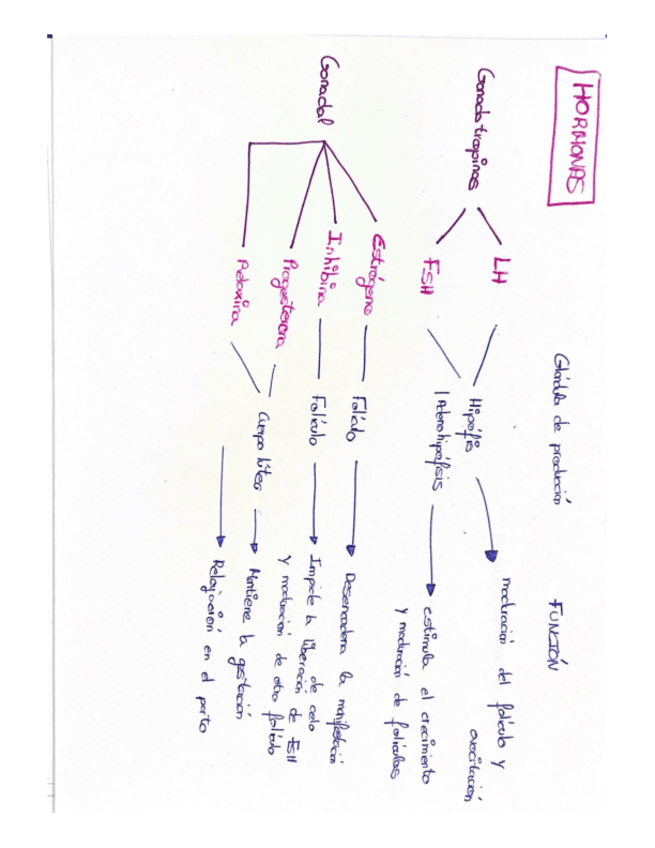 HORMONAS
Glándula de producción
FUNCIÓN
Gonadotropinas
LH
FSH
Hipófisis
/Adenohipófisis
maduración del folículo y
ovocitación
estimula el crecimiento
y maduración de folículos
Gonadal
Estrógeno
Folículo
Desencadena la manifestación
de celo
Inhibina
Folículo
Impide la liberación de FSH
y maduración de otro folículo
Progesterona
Cuerpo lúteo
Mantiene la gestación
Relaxina
Relajación en el parto